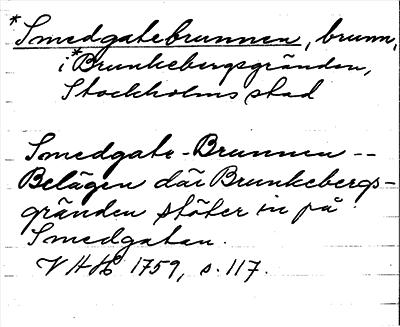 *Smedgatebrunnen, brunn,
i *Brunkebergsgränden,
Stockholms stad
Smedgate-Brunnen --
Belägen där Brunkebergs-
gränden stöter in på
Smedgatan.
VHH 1759, s. 117.